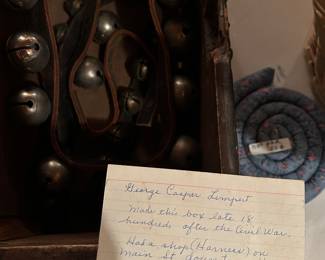 George Casper Limpert
Made this box late 18
hundreds after the Civil War.
Had a shop (Harness) on
Main St